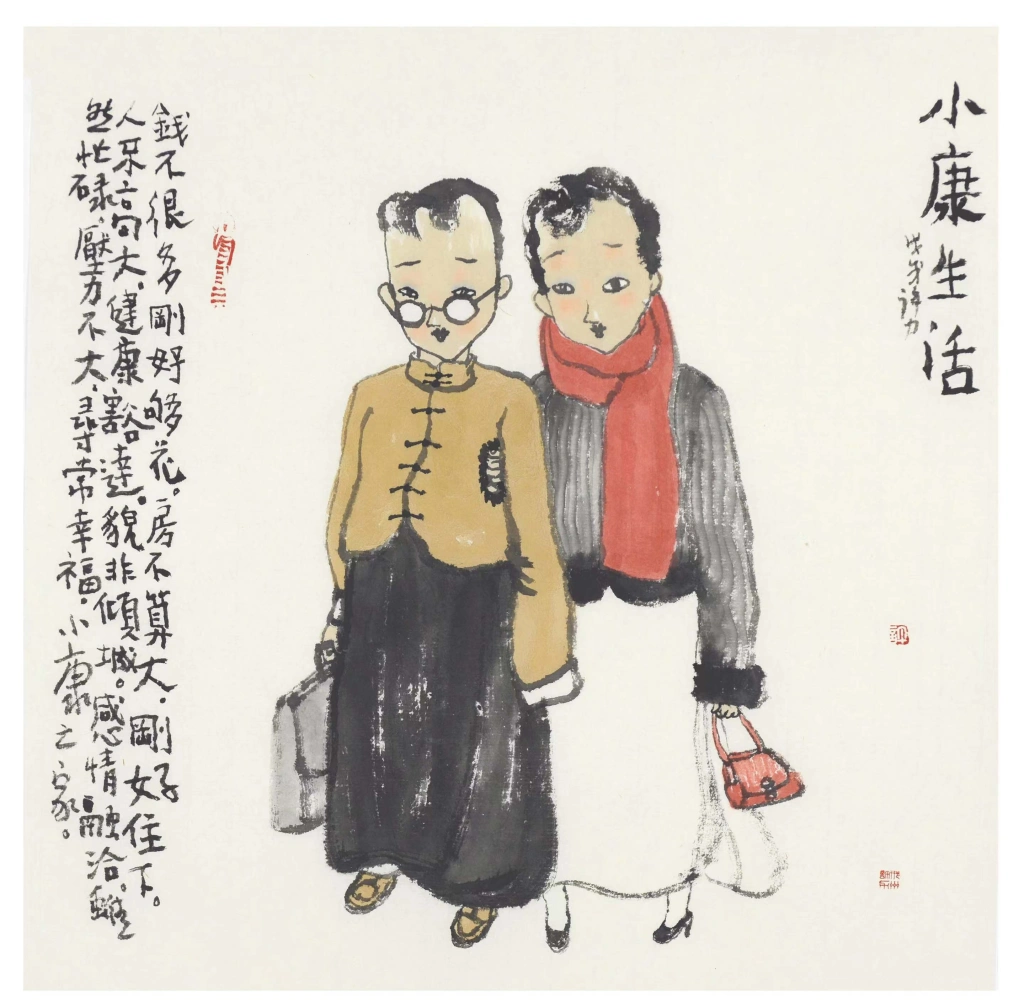 小康生活
戊戌
錢不很多剛好够花。房不算大,剛好住下。
人不高大,健康豁達。貌非傾城。感情融洽。雖
然忙碌,壓力不大,尋常幸福,小康之家。